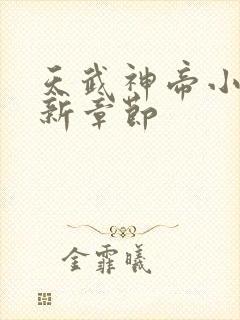 天武神帝小
新章節
金霏曦